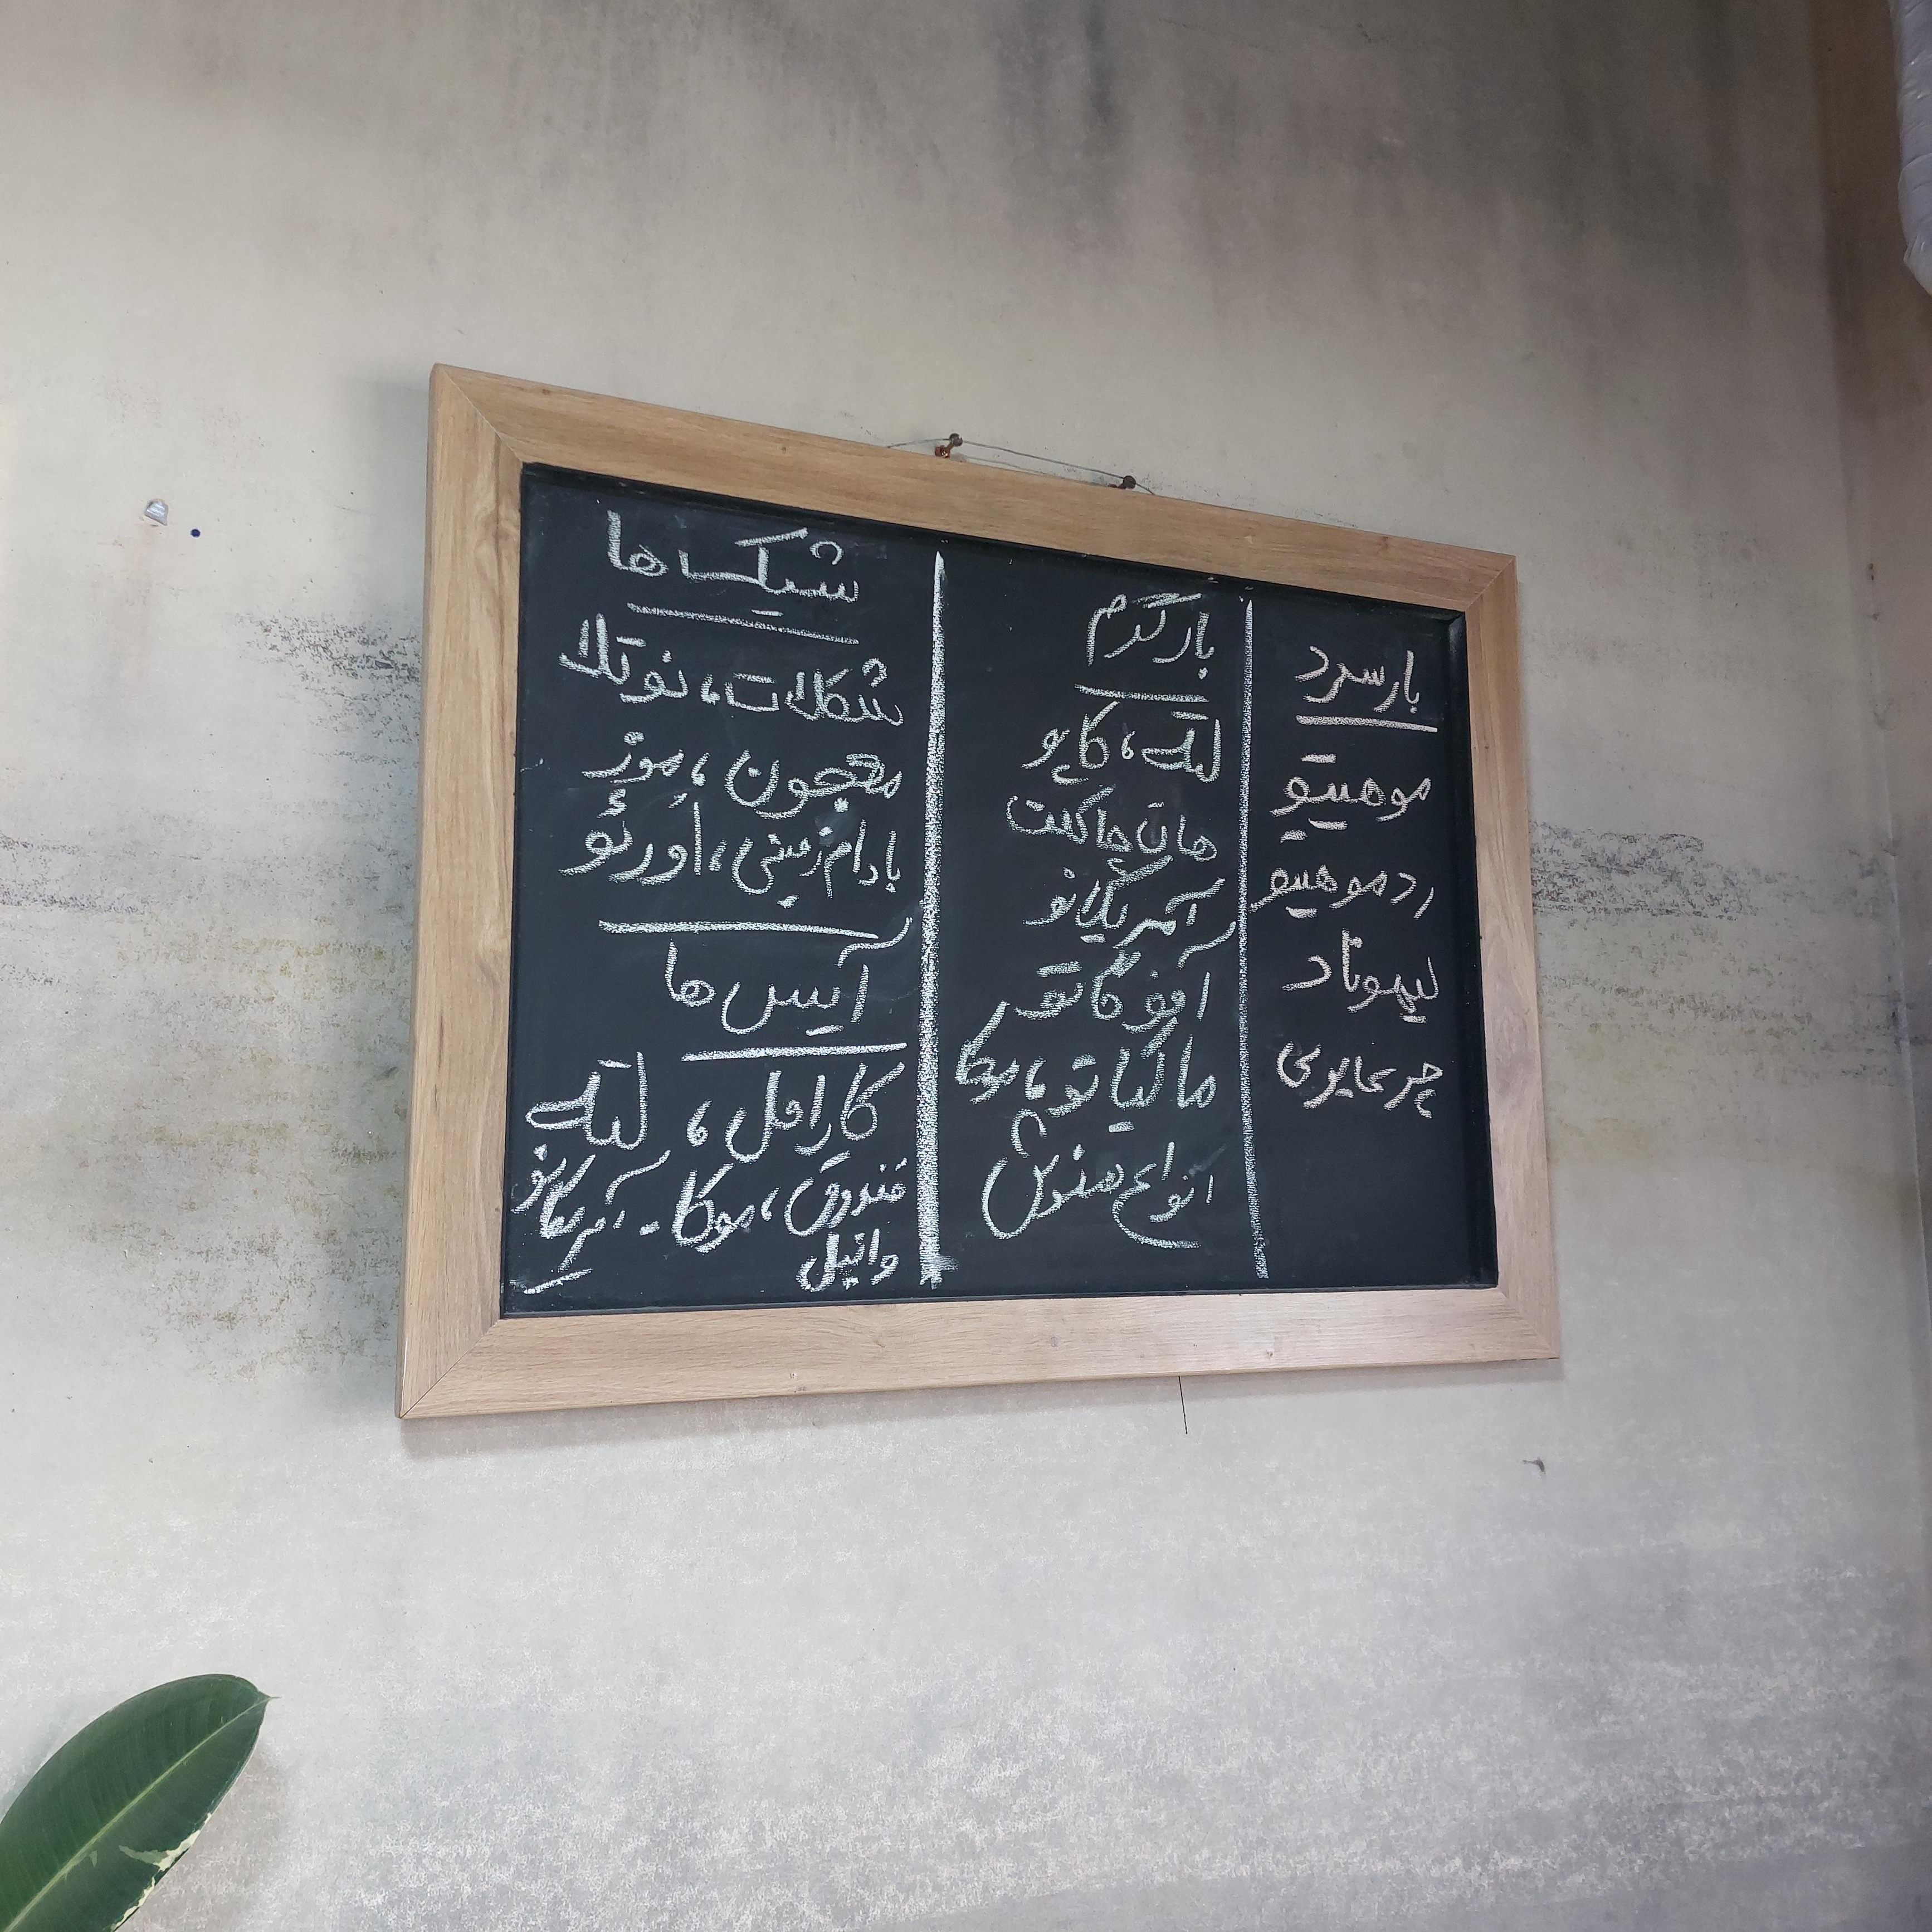 بار سرد
موهیتو
رد موهیتو
لیموناد
بار گرم
لته، کاپو
هات چاکلت
آمریکانو
آفوگاتو
ماکیاتو، موکا
انواع دمنوش
شیک ها
شکلات، نوتلا
معجون، موز
بادام زمینی، اورئو
آیس ها
کارامل، لته
فندوق، موکا - آمریکانو
وانیل